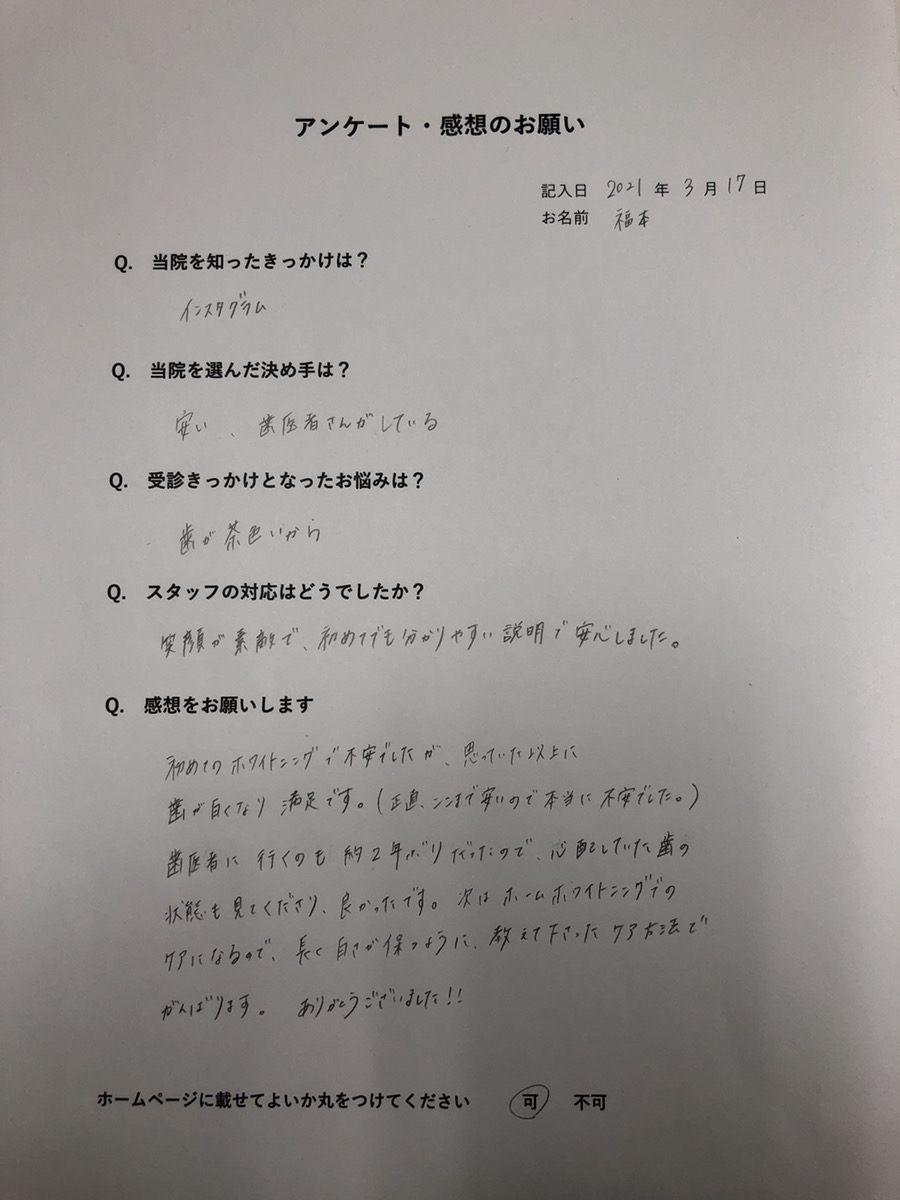 アンケート・感想のお願い
記入日 2021 年 3 月 17 日
お名前 福本
Q. 当院を知ったきっかけは？
インスタグラム
Q. 当院を選んだ決め手は？
安い、歯医者さんがしている
Q. 受診きっかけとなったお悩みは？
歯が茶色いから
Q. スタッフの対応はどうでしたか？
笑顔が素敵で、初めてでも分かりやすい説明で安心しました。
Q. 感想をお願いします
初めてのホワイトニングで不安でしたが、思っていた以上に
歯が白くなり満足です。(正直、ここまで安いので本当に不安でした。)
歯医者に行くのも約2年ぶりだったので、心配していた歯の
状態も見てくださり、良かったです。次はホームホワイトニングでの
ケアになるので、長く白さが保つように、教えて下さったケア方法で
がんばります。ありがとうございました!!
ホームページに載せてよいか丸をつけてください 可 不可